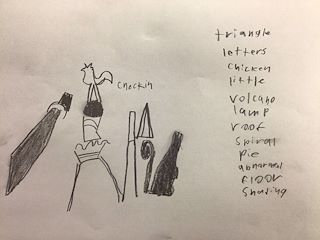 checkin
triangle
letters
chicken
little
volcano
lamp
roof
spiral
pie
abnormal
floor
shading